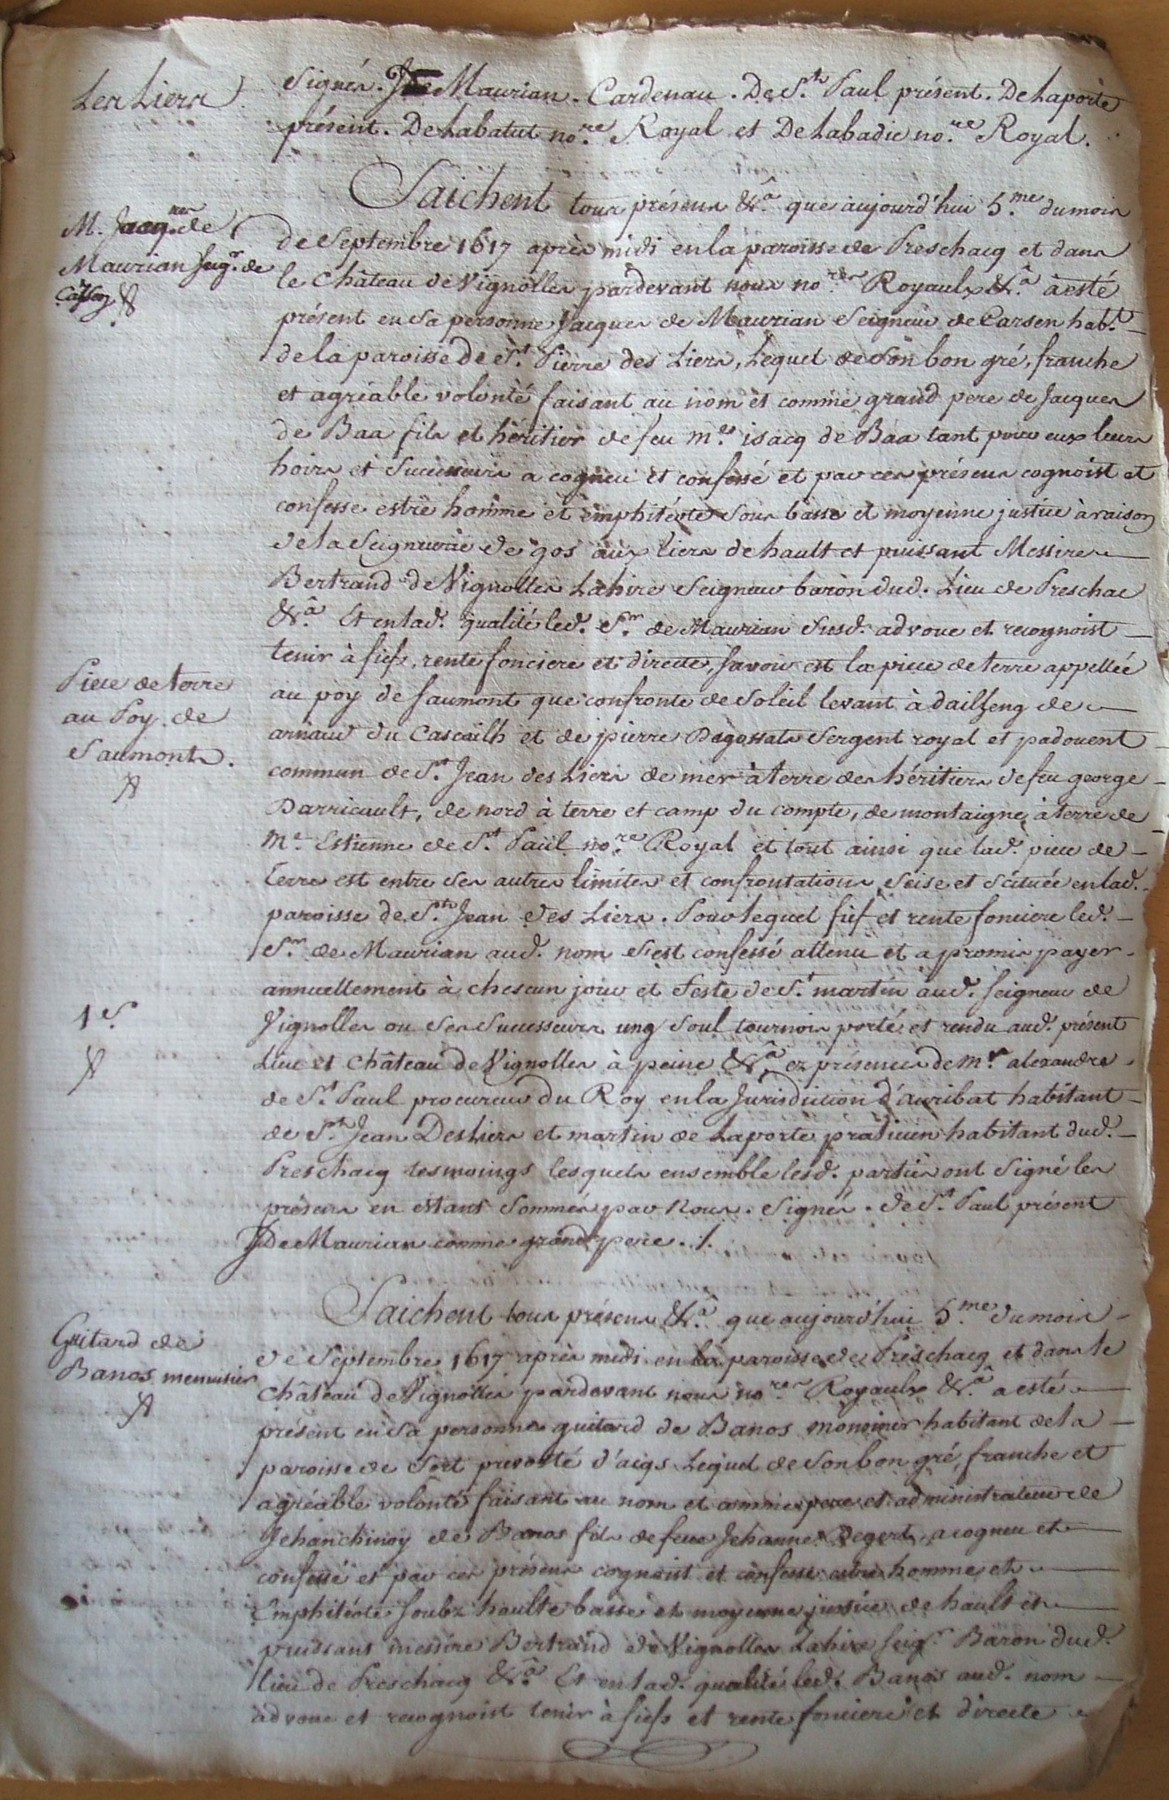 Les Liers
Signés. J. De Maurian. Cardenau. De St. Paul présent. De Laporte
présent. De Labatut no.re Royal et De Labadie no.re Royal.
Saichent tous présens &.a que aujourd'hui 5.me du mois
M. Jacq.es de
Maurian seigr. de
Carsen
de Septembre 1617 après midi en la paroisse de Preschacq et dans
le Château de Vignolles pardevant nous no.res Royaulx &.a a esté
présent en sa personne Jacques de Maurian Seigneur de Carsen hab.t
de la paroisse de St. Pierre des Liers, Lequel de son bon gré, franche
et agréable volonté faisant au nom et comme grand pere de Jacques
de Baa fils et héritier de feu m.e isacq de Baa tant pour eux leurs
hoirs et Successeurs a cogneu et confessé et par ces présens cognoist et
confesse estre homme et emphitéote sous basse et moyenne justice à raison
de la Seigneurie de gos aux liers de hault et puissant Messire
Bertrand de Vignolles Lahire Seigneur baron dud. Lieu de Preschac
&.a Et en lad. qualité led. Sr. de Maurian susd. advoue et recognoist
tenir à fiefs, rente fonciere et directe, savoir est la piece de terre appellée
Piece de terre
au Poy de
Saumonts.
au poy de saumont que confronte de Soleil levant à dailheng de
arnaud du Cascailh et de pierre Degossats Sergent royal et padouent
commun de St. Jean des Liers de mer à terre des héritiers de feu george
Darricault, de nord à terre et camp du compte, de montaigne à terre de
Me. Estienne de St. Paul no.re Royal et tout ainsi que lad. piece de
terre est entre ses autres limites et confrontations Seise et Scituée en lad.
paroisse de St. Jean des Liers. Pour lequel fief et rente fonciere led.
Sr. de Maurian aud. nom s'est confessé attenu et a promis payer
annuellement à chescun jour et feste de St. martin aud. seigneur de
1 s.
Vignolles ou ses Successeurs ung soul tournois porté et rendu aud. présent
Lieu et château de Vignolles à peine &.a ez présences de Mr. alexandre
de St. Paul procureur du Roy en la Jurisdiction d'auribat habitant
de St. Jean Desliers et martin de Laporte praticien habitant dud.
Preschacq tesmoings lesquels ensemble lesd. parties ont Signé les
présens en estans sommés par Nous. Signés. de St. Paul présent
J. De Maurian comme grand pere ./.
Saichent tous présens &.a que aujourd'hui 5.me du mois
Guitard de
Banos menusier
de Septembre 1617 après midi en la paroisse de Preschacq et dans le
château de Vignolles pardevant nous no.res Royaulx &.a a esté
présent en sa personne guitard de Banos habitant de la
paroisse de Sort prevosté d'aiqs Lequel de son bon gré, franche et
agréable volonté faisant au nom et comme pere et administrateur de
Jehanchinoy de Banos fils de feue Jehanne Degert, a cogneu et
confessé et par ces présens cognoist et confesse estre homme et
Emphitéote soubz haulte basse et moyenne justice de hault et
puissant messire Bertrand de Vignolles Lahire seigr. Baron dud.
lieu de Preschacq &.a Et en lad. qualité led. Banos aud. nom
advoue et recognoist tenir à fiefs et rente fonciere et directe